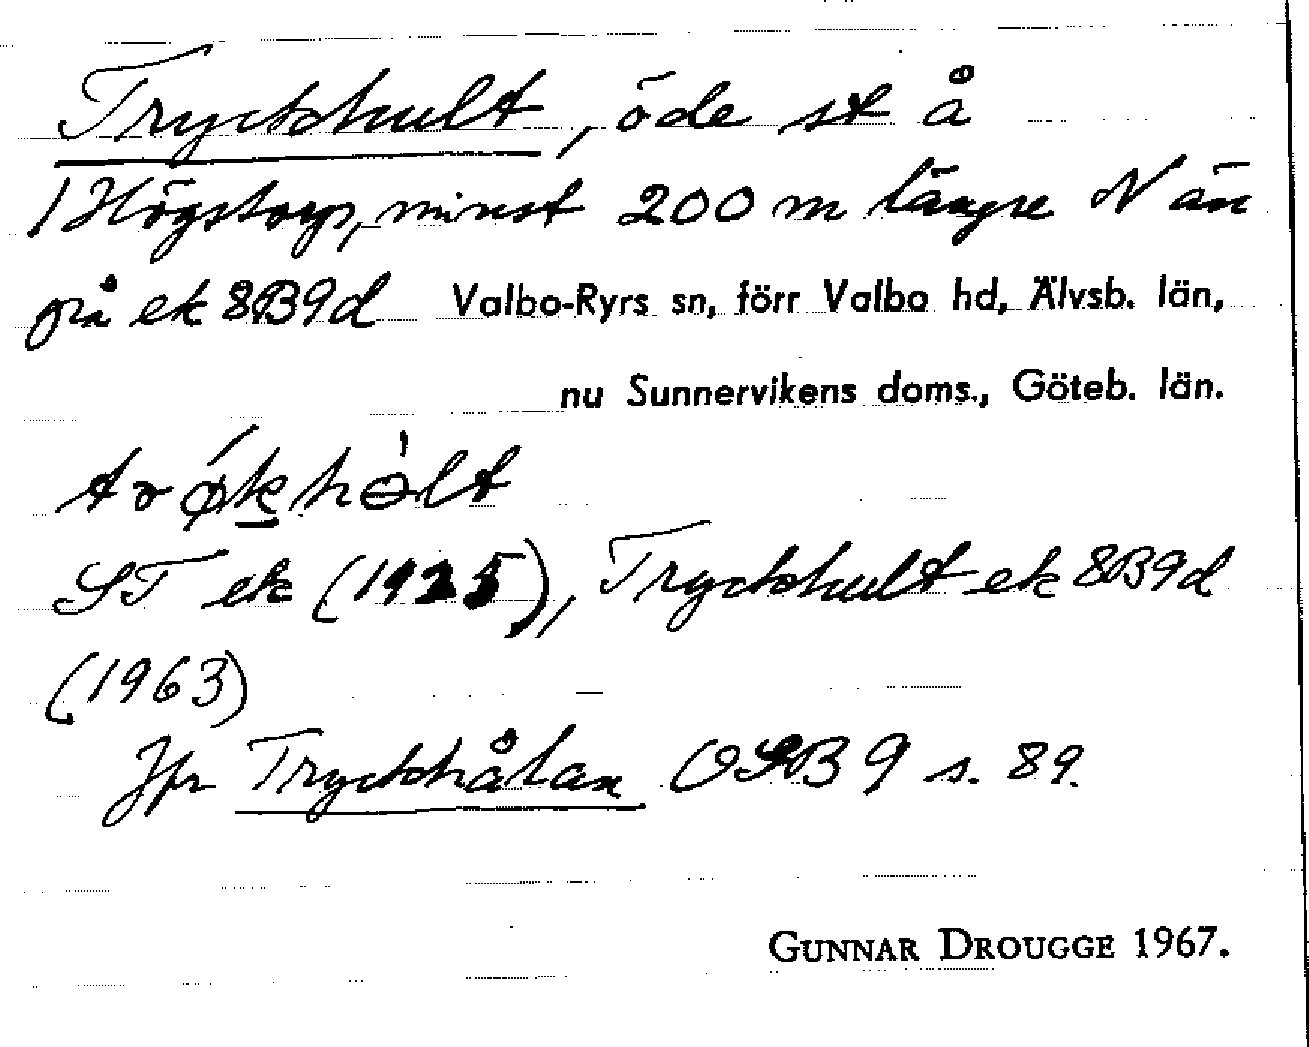 Tryckhult, öde st å
1 Högstorp, minst 200 m längre N än
på ek 8B9d Valbo-Ryrs sn, förr Valbo hd, Älvsb. län,
nu Sunnervikens doms., Göteb. län.
ST ek (1925), Tryckhult ek 8B9d
(1963)
Jfr Tryckhålan OGB 9 s. 89.
GUNNAR DROUGGE 1967.